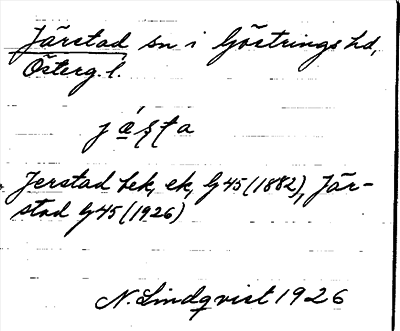 Järstad sn i Göstrings hd,
Österg. l.
jæ̀ʂʈa
Jerstad bek, ek, G45 (1882), Jär-
stad G45 (1926)
N. Lindqvist 1926